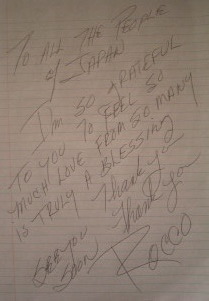 TO ALL THE PEOPLE
OF JAPAN
I'M SO GRATEFUL
TO YOU TO FEEL SO
MUCH LOVE FROM SO MANY
IS TRULY A BLESSING
Thank you
Thank You
SEE YOU
SOON
ROCCO